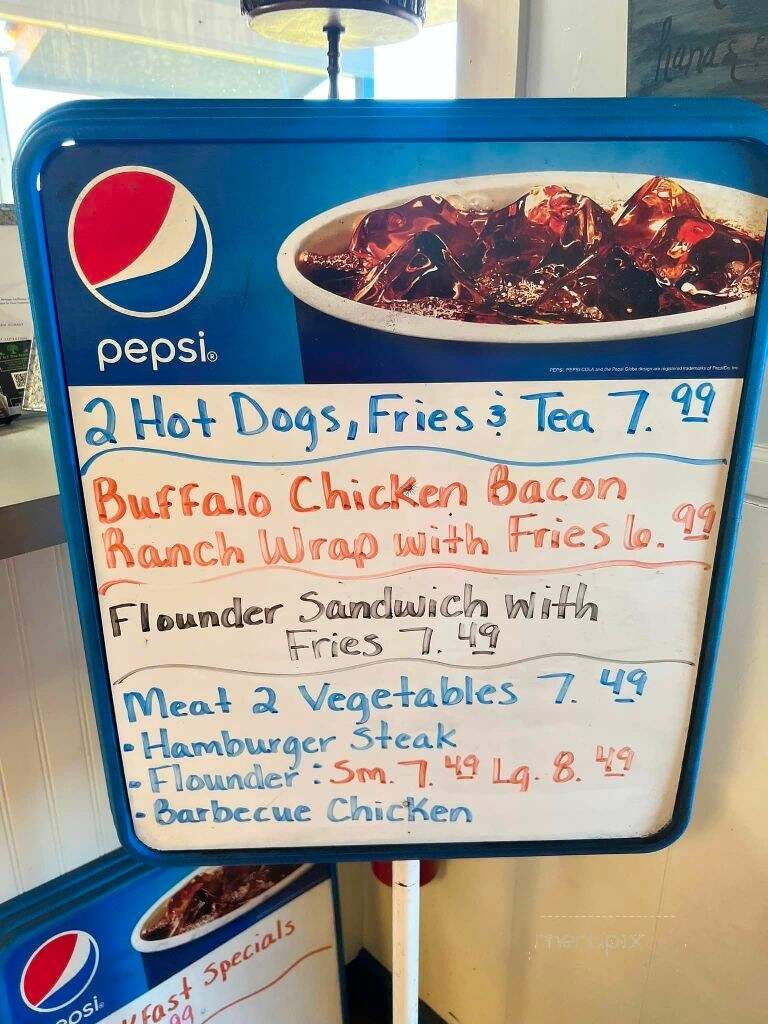 hands
pepsi®
PEPSI, PEPSI-COLA and the Pepsi Globe design are registered trademarks of PepsiCo, Inc.
2 Hot Dogs, Fries & Tea 7.99
Buffalo Chicken Bacon
Ranch Wrap with Fries 6.99
Flounder Sandwich with
Fries 7.49
Meat 2 Vegetables 7.49
• Hamburger Steak
• Flounder: Sm. 7.49 Lg. 8.49
• Barbecue Chicken
menupix
kfast Specials
.99